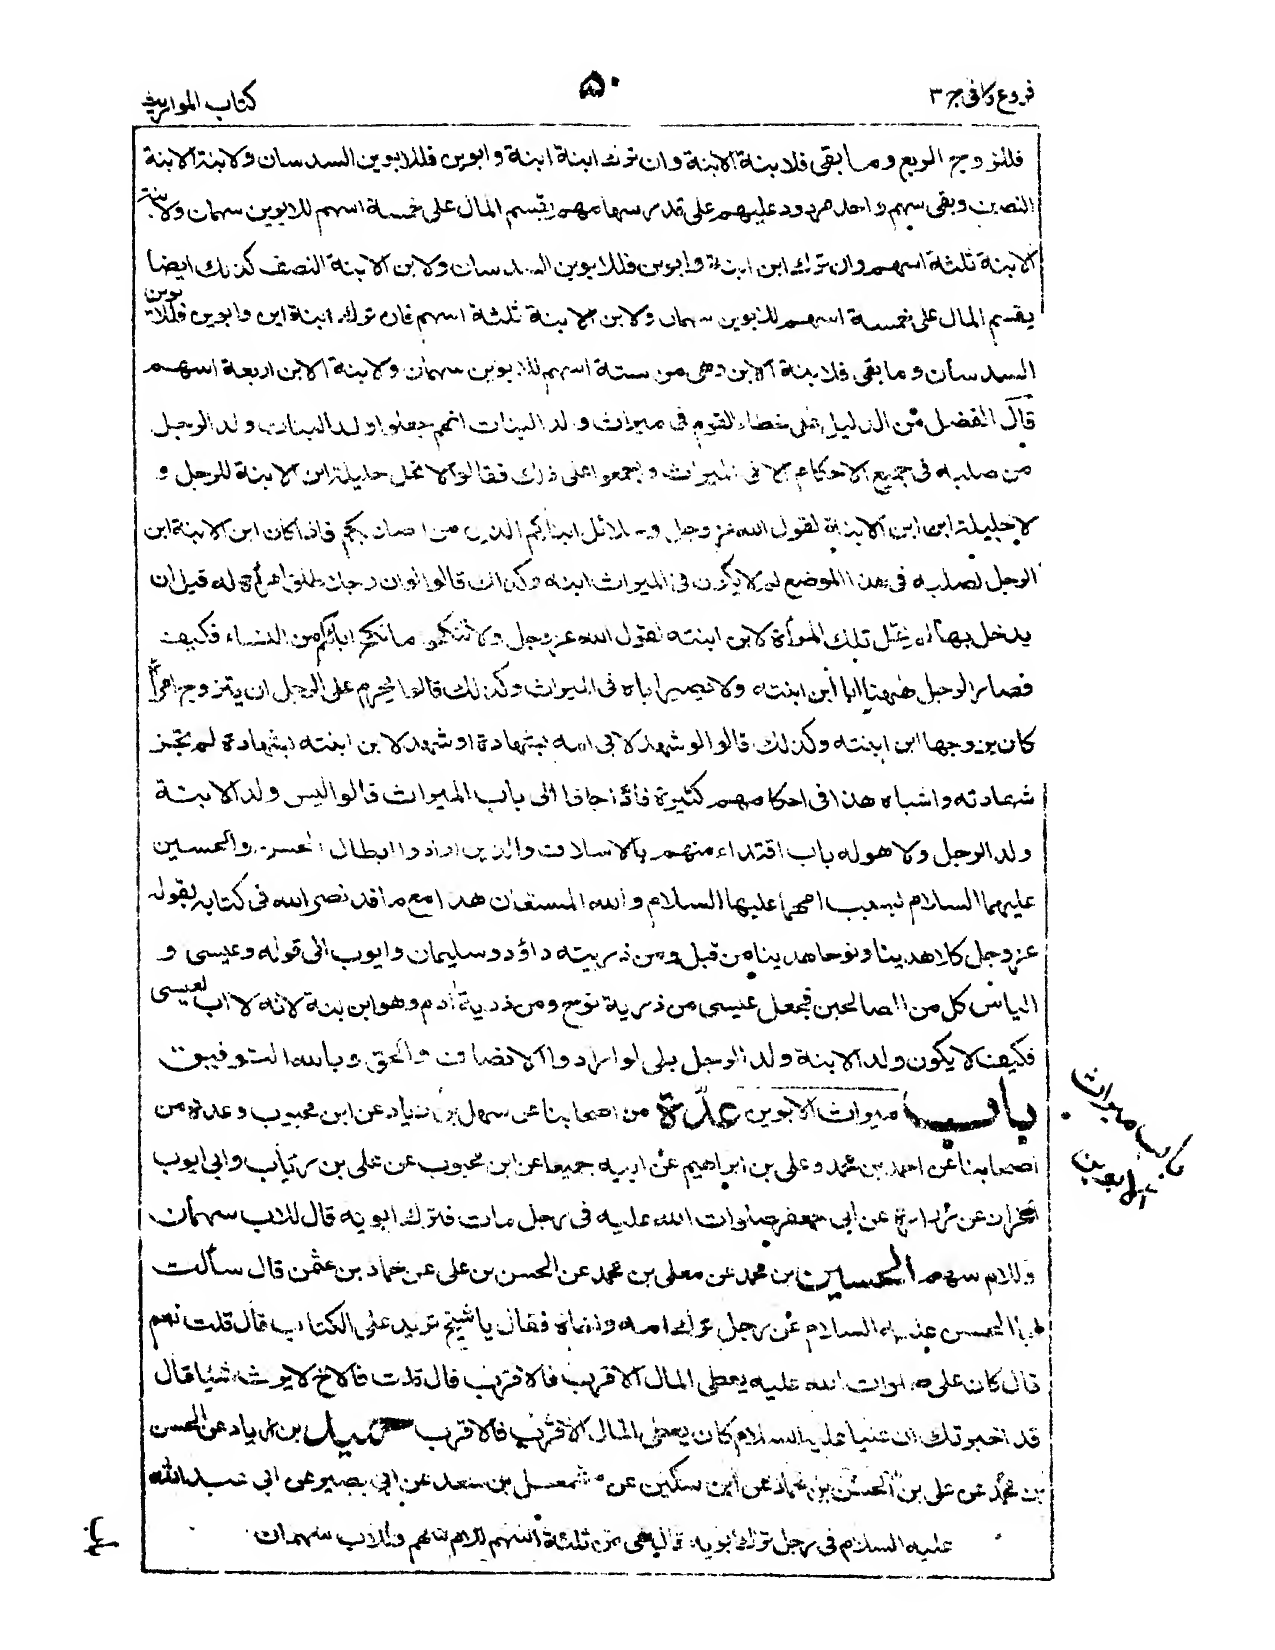 فروع كافى ج ٣
٥٠
كتاب المواريث
فللزوج الربع وما بقى فلابنة الابنة وان ترك ابنة ابنة وابوين فللابوين السدسان ولابنة الابنة
النصف وبقى سهم واحد مردود عليهم على قدر سهامهم يقسم المال على خمسة اسهم للابوين سهمان ولابنة
الابنة ثلثة اسهم وان ترك ابن ابنة وابوين فللابوين السدسان ولابن الابنة النصف كذلك ايضا
يقسم المال على خمسة اسهم للابوين سهمان ولابن الابنة ثلثة اسهم فان ترك ابنة ابن وابوين فللابوين
السدسان وما بقى فلابنة الابن وهى من ستة اسهم للابوين سهمان ولابنة الابن اربعة اسهم
قال الفضل من الدليل على خطاء القوم فى ميراث ولد البنات انهم جعلوا ولد البنات ولد الرجل
من صلبه فى جميع الاحكام الا فى الميراث واجمعوا على ذلك فقالوا لا تحل حليلة ابن الابنة للرجل و
لا حليلة ابن ابن الابنة لقول الله عز وجل وحلائل ابنائكم الذين من اصلابكم فاذا كان ابن الابنة ابن
الرجل لصلبه فى هذا الموضع لم لا يكون فى الميراث ابنه وكذلك قالوا لو ان رجلا طلق امرأة له قبل ان
يدخل بها لم تحل تلك المرأة لابن ابنته لقول الله عز وجل ولا تنكحوا ما نكح اباؤكم من النساء فكيف
فصار الرجل ههنا ابا ابن ابنته ولا يصير اباه فى الميراث وكذلك قالوا يحرم على الرجل ان يتزوج امرأة
كان تزوجها ابن ابنته وكذلك قالوا لو شهد لابى امه بشهادة او شهد لابن ابنته بشهادة لم تجز
شهادته واشباه هذا فى احكامهم كثيرة فاذا جاؤا الى باب الميراث قالوا ليس ولد الابنة
ولد الرجل ولا هو له باب اقتداء منهم بالاسلاف والذين ارادوا ابطال الحسن والحسين
عليهما السلام بسبب امهما عليها السلام والله المستعان هذا مع ما قد نص الله فى كتابه بقوله
عز وجل كلا هدينا ونوحا هدينا من قبل ومن ذريته داؤد وسليمان وايوب الى قوله وعيسى و
الياس كل من الصالحين فجعل عيسى من ذرية نوح ومن ذرية ادم وهو ابن بنة لانه لا اب لعيسى
فكيف لا يكون ولد الابنة ولد الرجل بلى لو ارادوا الانصاف والحق وبالله التوفيق
باب ميراث الابوين عدة من اصحابنا عن سهل بن زياد عن ابن محبوب وعدة من
اصحابنا عن احمد بن محمد وعلى بن ابراهيم عن ابيه جميعا عن ابن محبوب عن على بن رئاب وابى ايوب
الخزاز عن زرارة عن ابى جعفر صلوات الله عليه فى رجل مات فترك ابويه قال للاب سهمان
وللام سهم الحسين بن محمد عن معلى بن محمد عن الحسن بن على عن حماد بن عثمن قال سألت
ابا الحسن عليه السلام عن رجل ترك امه واخاه فقال يا شيخ تريد على الكتاب قال قلت نعم
قال كان على صلوات الله عليه يعطى المال الاقرب فالاقرب قال قلت فالاخ لا يرث شيئا قال
قد اخبرتك ان عليا عليه السلام كان يعطى المال الاقرب فالاقرب حميد بن زياد عن الحسن
بن محمد عن على بن الحسن بن حماد عن ابن سكين عن مشمعل بن سعد عن ابى بصير عن ابى عبد الله
عليه السلام فى رجل ترك ابويه قال هى من ثلثة اسهم للام سهم وللاب سهمان
باب ميراث
الابوين